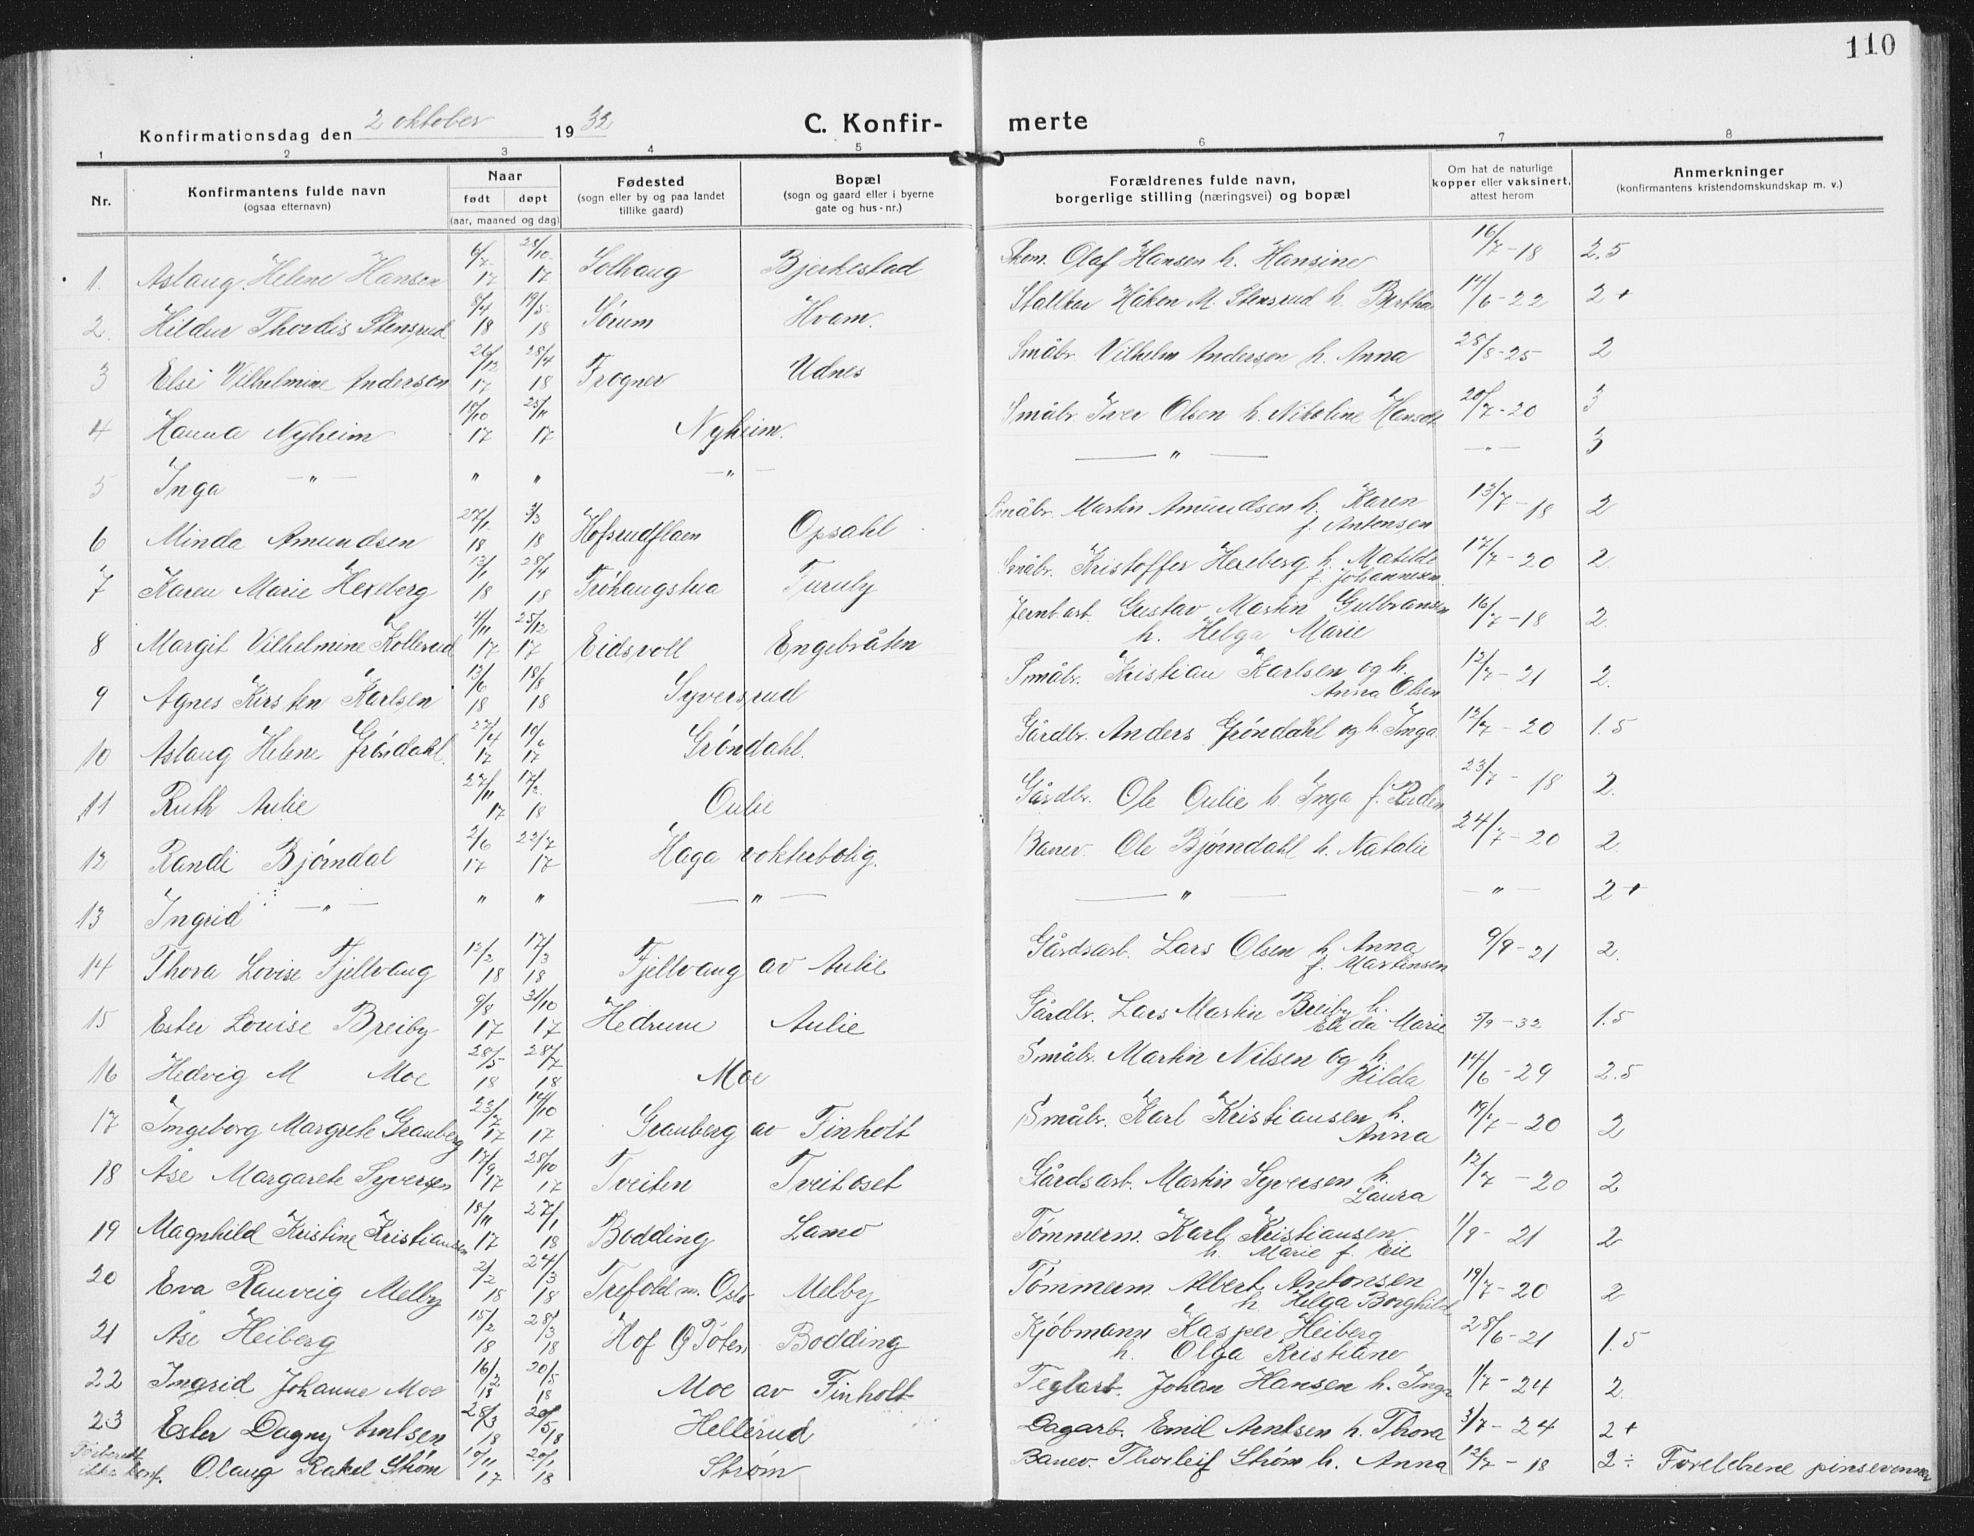 110
Konfirmationsdag den 2 oktober 1932 C. Konfirmerte
1 2 3 4 5 6 7 8
Nr. Konfirmantens fulde navn (ogsaa efternavn) Naar født døpt (aar, maaned og dag) Fødested (sogn eller by og paa landet tillike gaard) Bopæl (sogn og gaard eller i byerne gate og hus-nr.) Forældrenes fulde navn, borgerlige stilling (næringsvei) og bopæl Om hat de naturlige kopper eller vaksinert, attest herom Anmerkninger (konfirmantens kristendomskundskap m. v.)
1. Aslaug Helene Hansen 6/7 17 28/10 17 Solhaug Bjerkestad Skom. Olaf Hansen h. Hansine 16/7-18 2.5
2. Hildur Thordis Stensrud 8/4 18 19/5 18 Sørum Hvam. Håken M. Stensrud h. Bertha 14/6-22 2+
3 Else Vilhelmine Anderson 26/12 17 28/4 18 Frogner Udnes Småbr. Vilhelm Anderson h. Anna 28/8-25 2
4 Hanna Nyheim 18/10 17 25/11 17 Nyheim. Småbr. Iver Olsen h. Nikoline Hansdt. 20/7-20 3
5 Inga —"— " " —"— —"— —"— 3
6 Minda Amundsen 27/1 18 3/3 18 Hofsrudfloen Opsahl Småbr. Martin Amundsen h. Karen f. Antonsen 13/7-18 2
7 Karen Marie Hexeberg 13/1 18 28/4 18 Frøhaugstua Furuly Småbr. Kristoffer Hexeberg h. Matilde f. Johannesen. 17/7-20 2.
8 Margit Vilhelmine Kollerud 4/11 17 25/12 17 Eidsvoll Engebråten Jernb.arb. Gustav Martin Gulbransen h. Helga Marie 16/7-18 2.
9 Agnes Kirsten Karlsen 13/6 18 18/8 18 Syversrud Småbr. Kristian Karlsen og h. Anna Olsen 12/7-21 2.
10 Aslaug Helene Grøndahl. 27/4 17 10/6 17 Grøndahl. Gårdbr. Anders Grøndahl og h. Inga 12/7-20 1.5
11 Ruth Aulie 27/11 17 17/2 18 Aulie Gårdbr. Ole Aulie h. Inga f. Ruden 23/7-18 2.
12 Randi Bjørndal 2/6 17 22/7 17 Haga vokterbolig. Banev. Ole Bjørndahl h. Natalie 24/7-20 2.
13 Ingrid —"— " " —"— —"— —"— 2+
14 Thora Lovise Fjellvang 12/2 18 17/3 18 Fjellvang av Aulie Gårdsarb. Lars Olsen h. Anna f. Martinsen 9/9-21 2.
15 Ester Louise Breiby 9/8 17 31/10 17 Hedrum Aulie Gårdbr. Lars Martin Breiby h. Elida Marie 5/9-32 1.5
16 Hedvig M Moe 28/5 18 28/7 18 Moe Småbr. Martin Nilsen og h. Hilda 14/6-29 2.5
17 Ingeborg Margrete Granberg 23/7 17 14/10 17 Granberg av Finholt Småbr. Karl Kristiansen h. Anna 19/7-20 2
18 Åse Margarete Syversen 17/9 17 28/10 17 Tveiten Tveitoset Gårdsarb. Martin Syversen h. Laura 12/7-20 2
19 Magnhild Kristine Kristiansen 18/11 17 27/1 18 Bodding Lamo Tømmerm. Karl Kristiansen h. Marie f. 1/9-21 2
20 Eva Rauveig Melby 2/2 18 24/3 18 Trefold m. Oslo Melby Tømmerm Albert Antonsen h Helga Borghild 19/7-20 2
21 Åse Heiberg 15/2 18 28/3 18 Hof Ø Toten Bodding Kjøbmann Kasper Heiberg h. Olga Kristiane 28/6-21 1.5
22 Ingrid Johanne Moe 16/2 18 20/5 18 Moe av Finholt Teglarb. Johan Hansen h. Inga 1/7-24 2.
23 Ester Dagny Arntsen 28/3 18 20/5 18 Hellerud Dagarb. Emil Arntsen h. Thora 3/7-24 2+
Forberedt ikke konf. Olaug Rakel Strøm 10/11 17 20/1 18 Strøm Banev. Thorleif Strøm h. Anna 12/7-18 2÷ Foreldrene pinsevenner